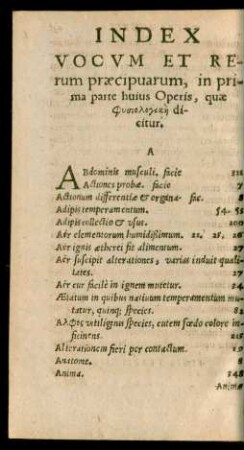 INDEX
VOCVM ET RE-
rum præcipuarum, in pri-
ma parte huius Operis, quæ
Φυσιολογικὴ di-
citur.
A
ABdominis musculi. facie
Actiones probæ. facie 7
Actionum differentiæ & organa. fac. 8
Adipis temperamentum. 54.
Adipis collectio & vsus. 200
Aër elementorum humidissimum. 22. 25. 26
Aër ignis ætherei fit alimentum. 27
Aër suscipit alterationes, varias induit quali-
tates. 27
Aër cur facilè in ignem mutetur. 24
Ætatum in quibus natiuum temperamentum mu-
tatur, quinq; species. 82
Αλφος vitiliginis species, cutem fœdo colore in-
ficiens. 215
Alterationem fieri per contactum. 29
Anatome. 8
Anima. 548
Anima